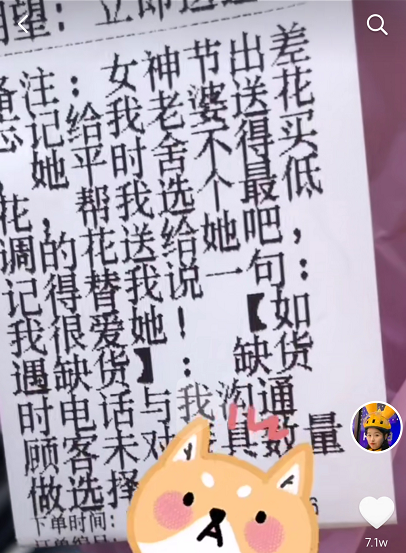 望：立即送达
备注：女神节出差
忘记给我老婆送花
，她平时舍不得买
花，帮我选个最低
调的花送给她吧，
记得替我说一句：
我很爱她！【如
遇缺货】：缺货
时电话与我沟通
顾客未对具数量
做选择
下单时间：
7.1w